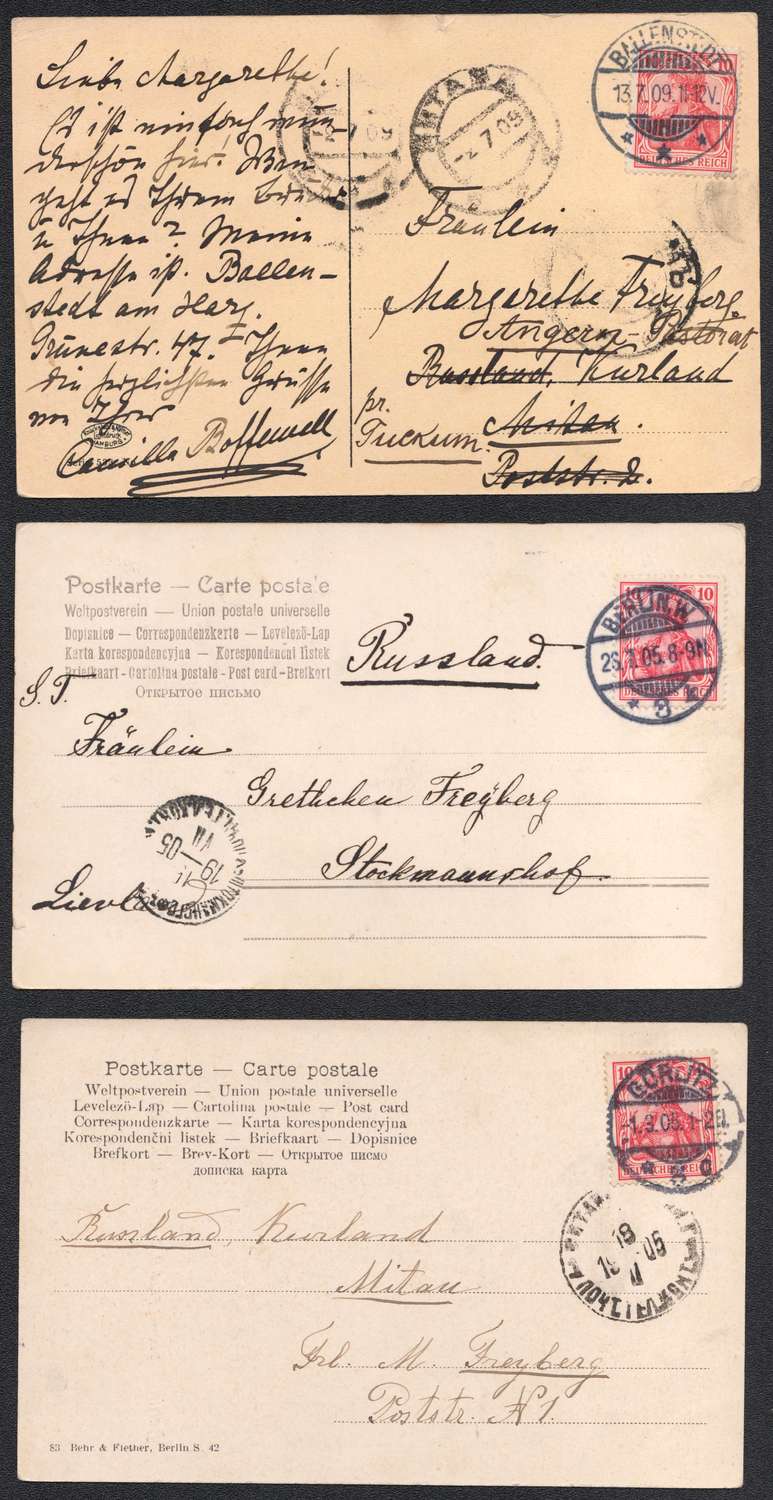 Liebe Margarethe!
Es ist einfach wun-
derschön hier! Wie
geht es Ihrem
u Ihnen? Meine
Adresse ist. Ballen-
stedt am Harz.
Grünestr. 47. Ihnen
die herzlichsten Grüsse
von Ihrer
Camilla
HAMBURG
МИТАВА
-2.7.09
2 7 09
BALLENSTEDT
13.7.09.11-12V.
DEUTSCHES REICH
Fräulein
Margarethe Freyberg.
Angern-Pastorat
Russland, Kurland
pr.
Mitau.
Tuckum.
Poststr. 2.
Postkarte — Carte postale
Weltpostverein — Union postale universelle
Dopisnice — Correspondenzkarte — Levelező-Lap
Karta korespondencyjna — Korespondenční listek
Briefkaart - Cartolina postale - Post card - Brefkort
Открытое письмо
10
BERLIN.W
26.7.05.8-9N.
DEUTSCHES REICH
8
Russland.
S. T.
Fräulein
Grethchen Freÿberg
Stockmannshof.
19 05
VII
10
GÖRLITZ
-1.9.05.1-2N.
DEUTSCHES REICH
Postkarte — Carte postale
Weltpostverein — Union postale universelle
Levelező-Lap — Cartolina postale — Post card
Correspondenzkarte — Karta korespondencyjna
Korespondenční listek — Briefkaart — Dopisnice
Brefkort — Brev-Kort — Открытое писмо
дописка карта
Russland, Kurland
Mitau
Frl. M. Freyberg
Poststr. № 1.
83 Behr & Flether, Berlin S. 42